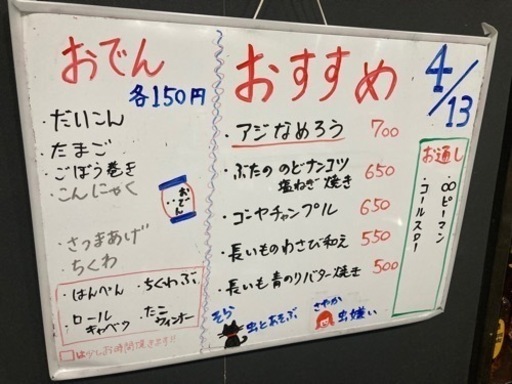 おでん
各150円
・だいこん
・たまご
・ごぼう巻き
・こんにゃく
・さつまあげ
・ちくわ
おでん
・はんぺん ・ちくわぶ
・ロールキャベツ ・たこウィンナー
□は少しお時間頂きます!!
おすすめ
・アジなめろう 700
・ぶたの のどナンコツ塩ねぎ焼き 650
・ゴーヤチャンプル 650
・長いものわさび和え 550
・長いも青のりバター焼き 500
そら 虫とあそぶ
さやか 虫嫌い
4/13
お通し
・∞ピーマン
・コールスロー